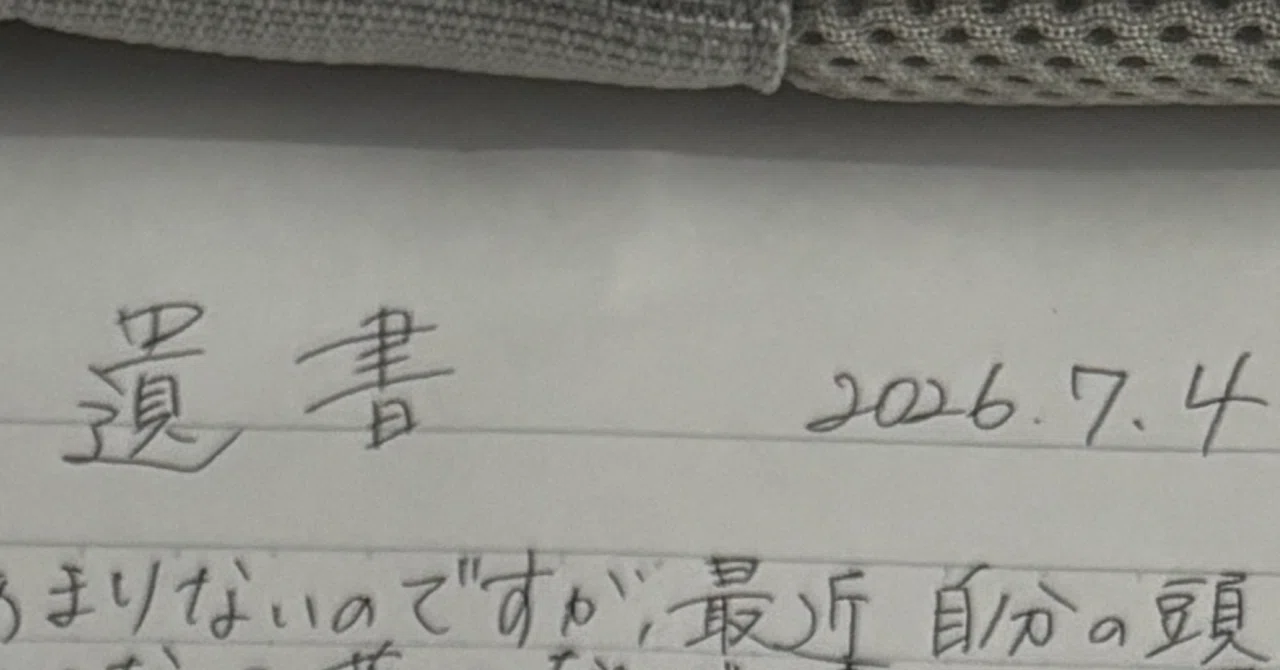 遺書 2026.7.4
あまりないのですが、最近 自分の頭